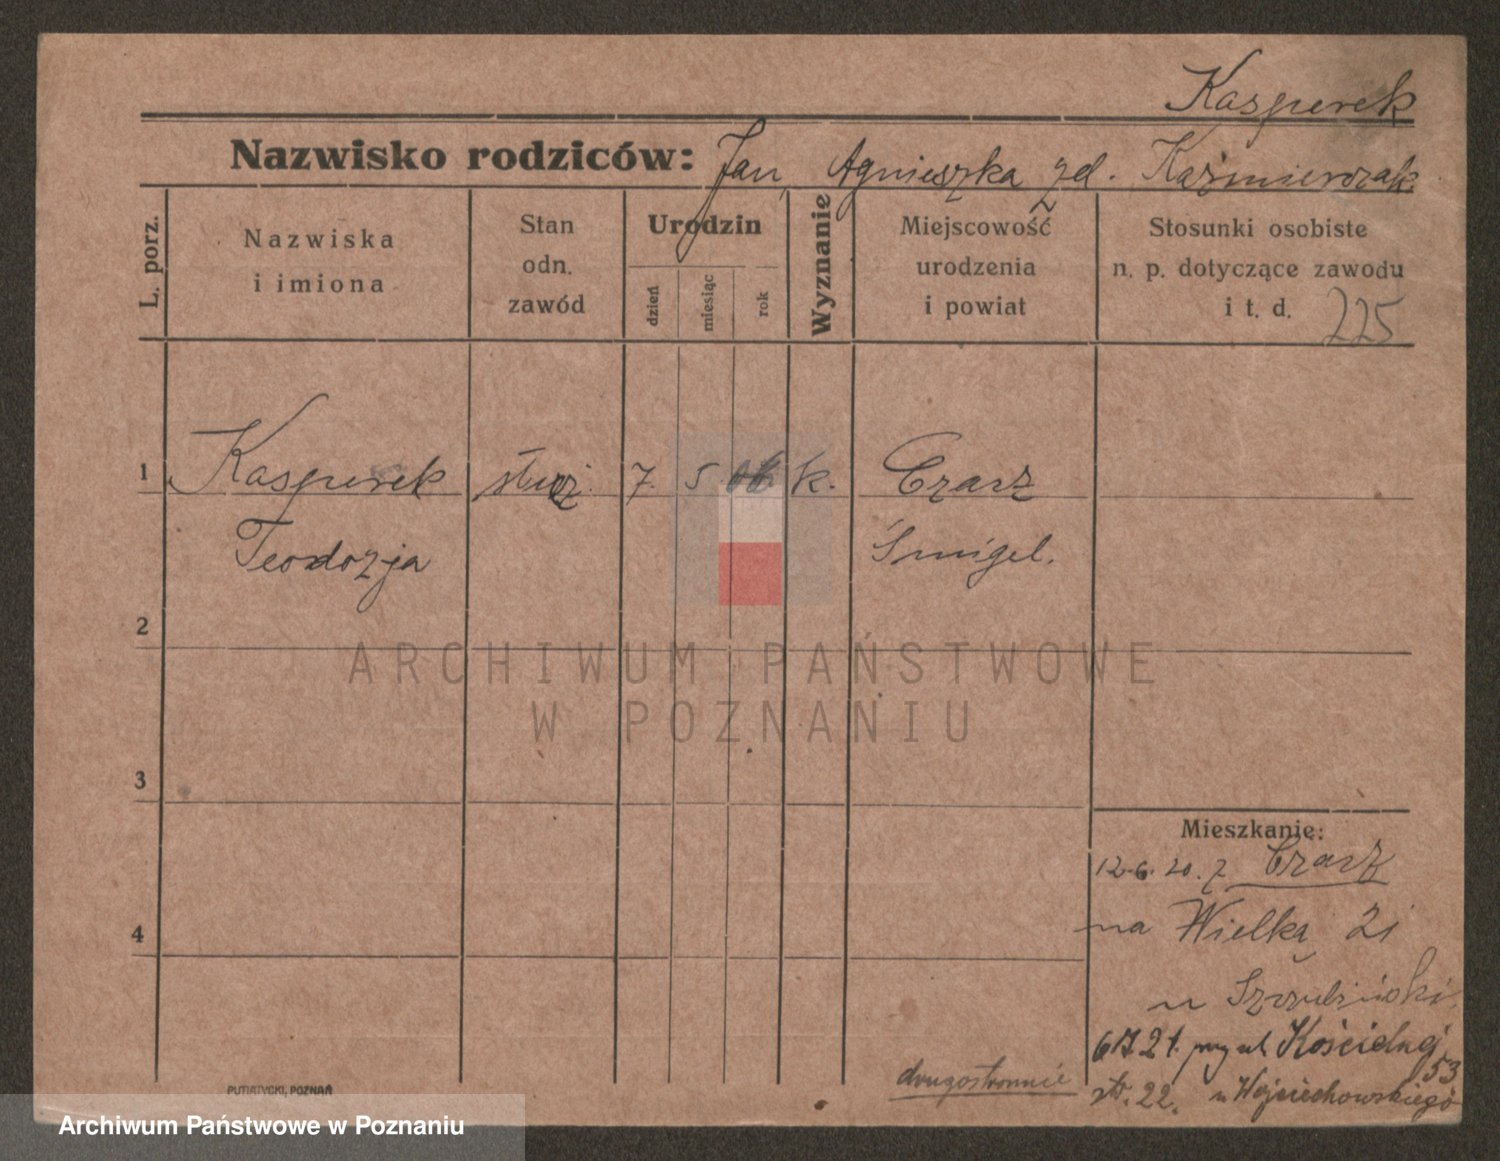 Kasperek
Nazwisko rodziców: Jan, Agnieszka zd. Kaźmierczak
L. porz.
Nazwiska
i imiona
Stan
odn.
zawód
Urodzin
dzień
miesiąc
rok
Wyznanie
Miejscowość
urodzenia
i powiat
Stosunki osobiste
n. p. dotyczące zawodu
i t. d. 225
1 Kasperek służ. 7. 5. 06 k. Czacz
Teodozja Śmigel.
2
3
4
ARCHIWUM PAŃSTWOWE
W POZNANIU
Mieszkanie:
12.6.20. z Czacz
na Wielką 21
u
21. przy ul. Kościelnej
53
22. u Wojciechowskiego
dwugostronnie
PUTIATYCKI, POZNAŃ
Archiwum Państwowe w Poznaniu